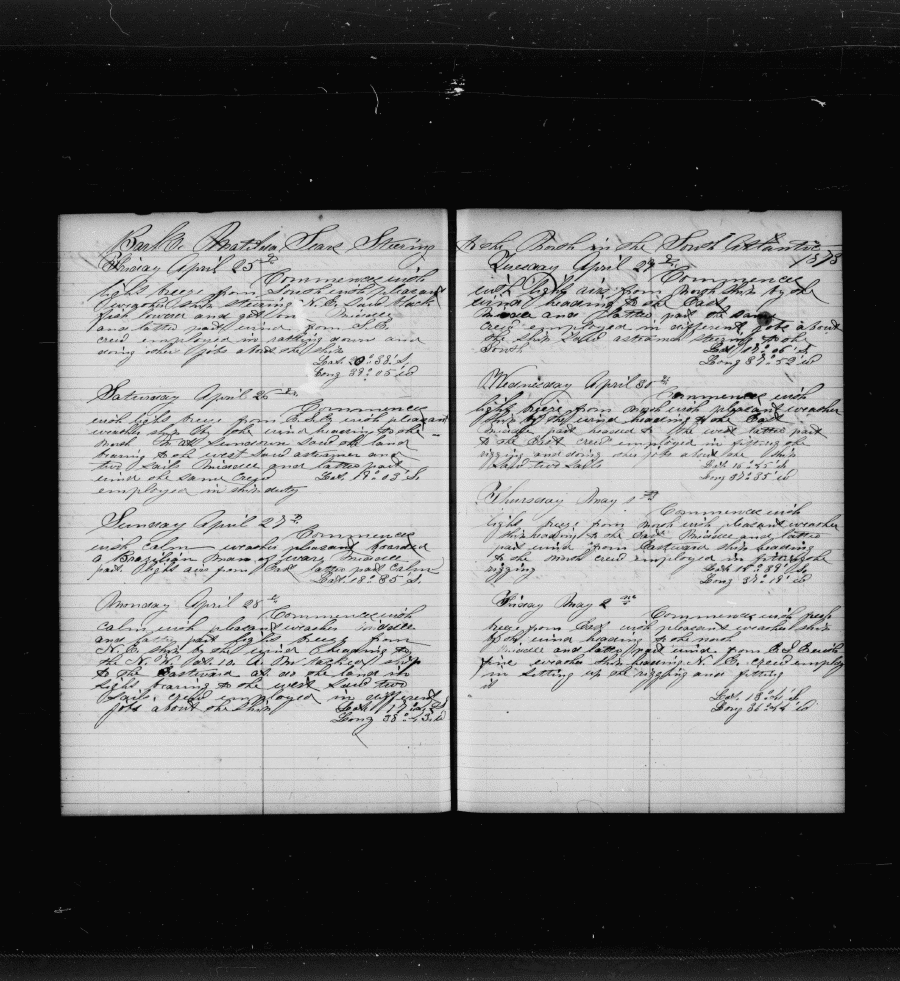 Bark Matilda Sears Steering
Friday April 25th
Commences with
light breeze from South with pleasant
weather ship steering N. E. Saw black
fish lowered and got Middle
and latter part wind from S. E.
crew employed in rattling down and
doing other jobs about the ship
Lat. S
Long 39° 05' W
Saturday April 26th
Commences
with light breeze from with pleasant
weather ship by the wind heading to the
North At Sundown Saw land
bearing to the west Saw a steamer and
two Sails Middle and latter part
wind the same Crew Lat. 19° 03' S.
employed in ship duty
Sunday April 27th
Commences
with calm weather pleasant boarded
a Brazilian man of war Middle
part light airs from East latter part calm
Lat. 18° 35' S.
Monday April 28th
Commences with
calm with pleasant weather middle
and latter part light breeze from
N. E. ship by the wind heading to
the N. W. At 10 A. M. tacked ship
to the Eastward at the land in
sight bearing to the west Saw two
Sails crew employed in different
jobs about the Ship Lat. 17°
Long 38° 43' W
to the North in the South Atlantic
1873
Tuesday April 29th
Commences
with light airs from North ship by the
wind heading to the East
Middle and latter part the same
Crew employed in different jobs about
the ship Saw a steamer steering to the
South Lat. S
Long W
Wednesday April 30th
Commences with
light breeze from North with pleasant weather
Ship by the wind heading to the East
middle part headed to the west latter part
to the East crew employed in fitting the
rigging and doing other jobs about the ship
Saw two Sails Lat. S
Long W
Thursday May 1st
Commences with
light breeze from North with pleasant weather
ship heading to the East Middle and latter
part wind from Eastward ship heading
to the north crew employed in fitting the
rigging Lat. 18° 39' S
Long 37° 18' W
Friday May 2nd
Commences with fresh
breeze from East with pleasant weather ship
by the wind heading to the north
Middle and latter part wind from E S E with
fine weather ship heading N. E. crew employed
in setting up the rigging and fitting
it
Lat. S
Long 36° 44' W